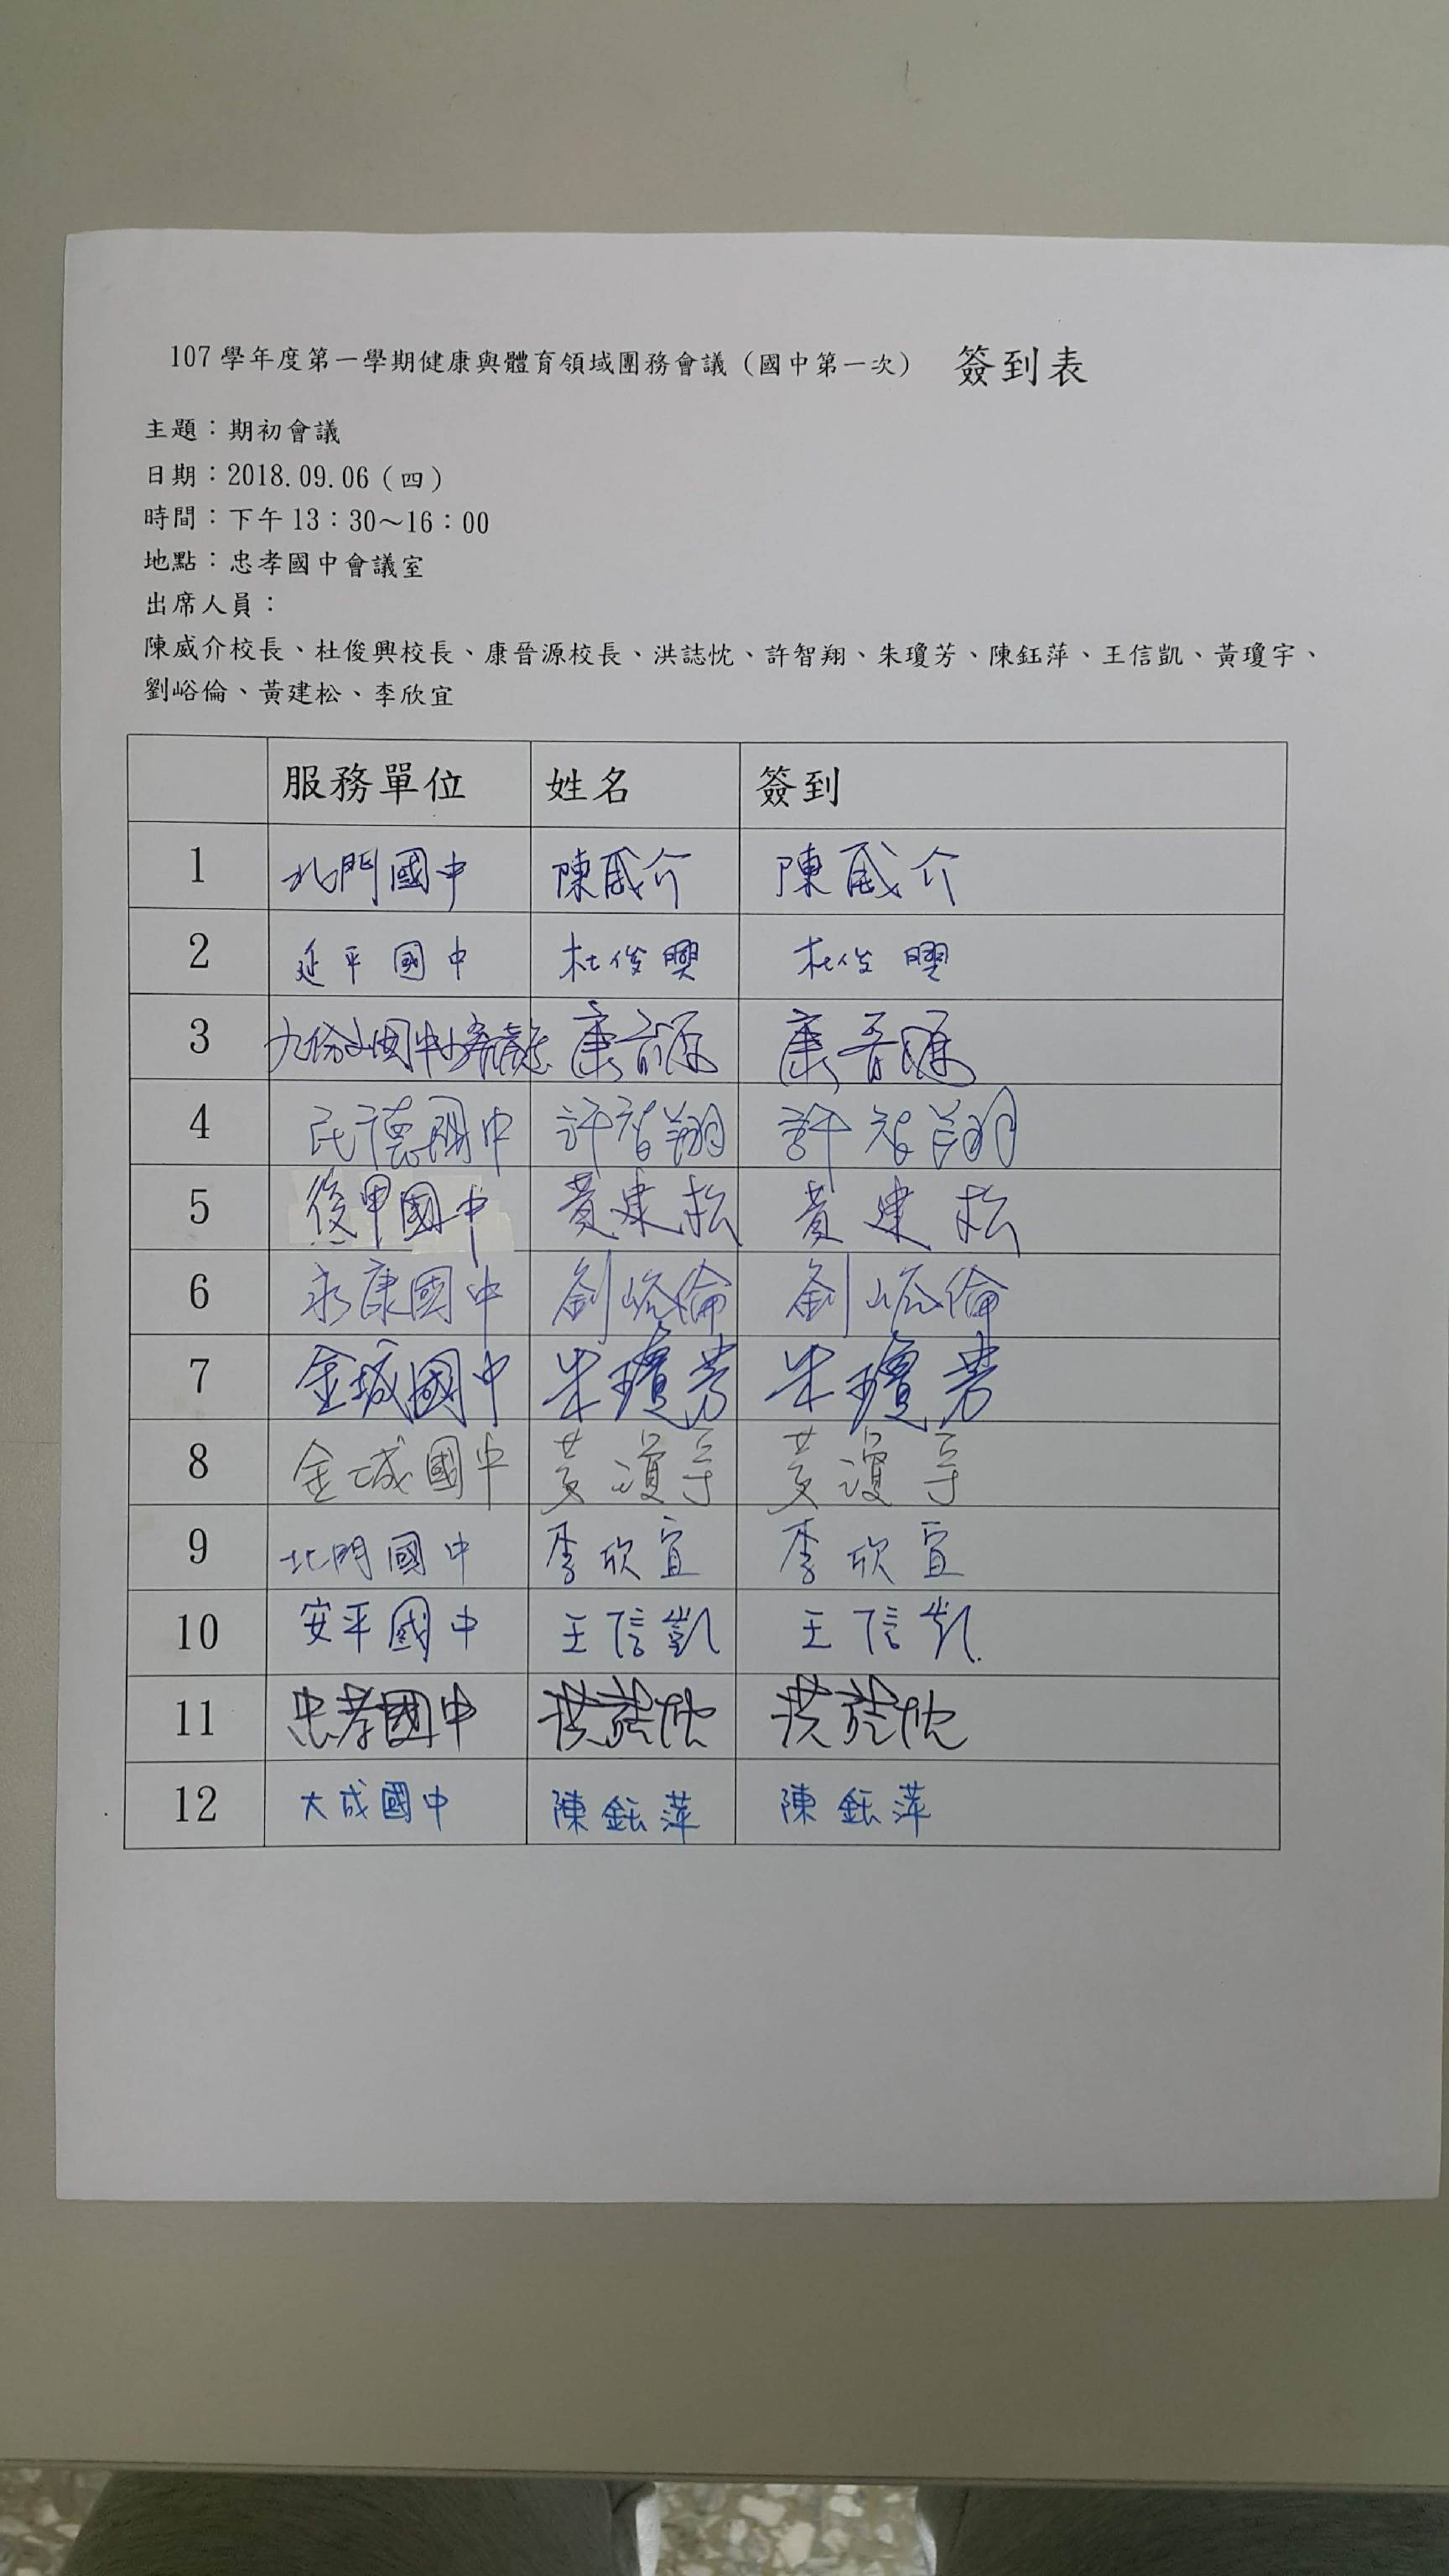 107 學年度第一學期健康與體育領域團務會議（國中第一次） 簽到表
主題：期初會議
日期：2018.09.06（四）
時間：下午 13：30～16：00
地點：忠孝國中會議室
出席人員：
陳威介校長、杜俊興校長、康晉源校長、洪誌忱、許智翔、朱瓊芳、陳鈺萍、王信凱、黃瓊宇、
劉峪倫、黃建松、李欣宜
服務單位 姓名 簽到
1 北門國中 陳威介 陳威介
2 延平國中 杜俊興 杜俊興
3 九份子國中小 康晉源 康晉源
4 民德國中 許智翔 許智翔
5 後甲國中 黃建松 黃建松
6 永康國中 劉峪倫 劉峪倫
7 金城國中 朱瓊芳 朱瓊芳
8 金城國中 黃瓊宇 黃瓊宇
9 北門國中 李欣宜 李欣宜
10 安平國中 王信凱 王信凱
11 忠孝國中 洪誌忱 洪誌忱
12 大成國中 陳鈺萍 陳鈺萍